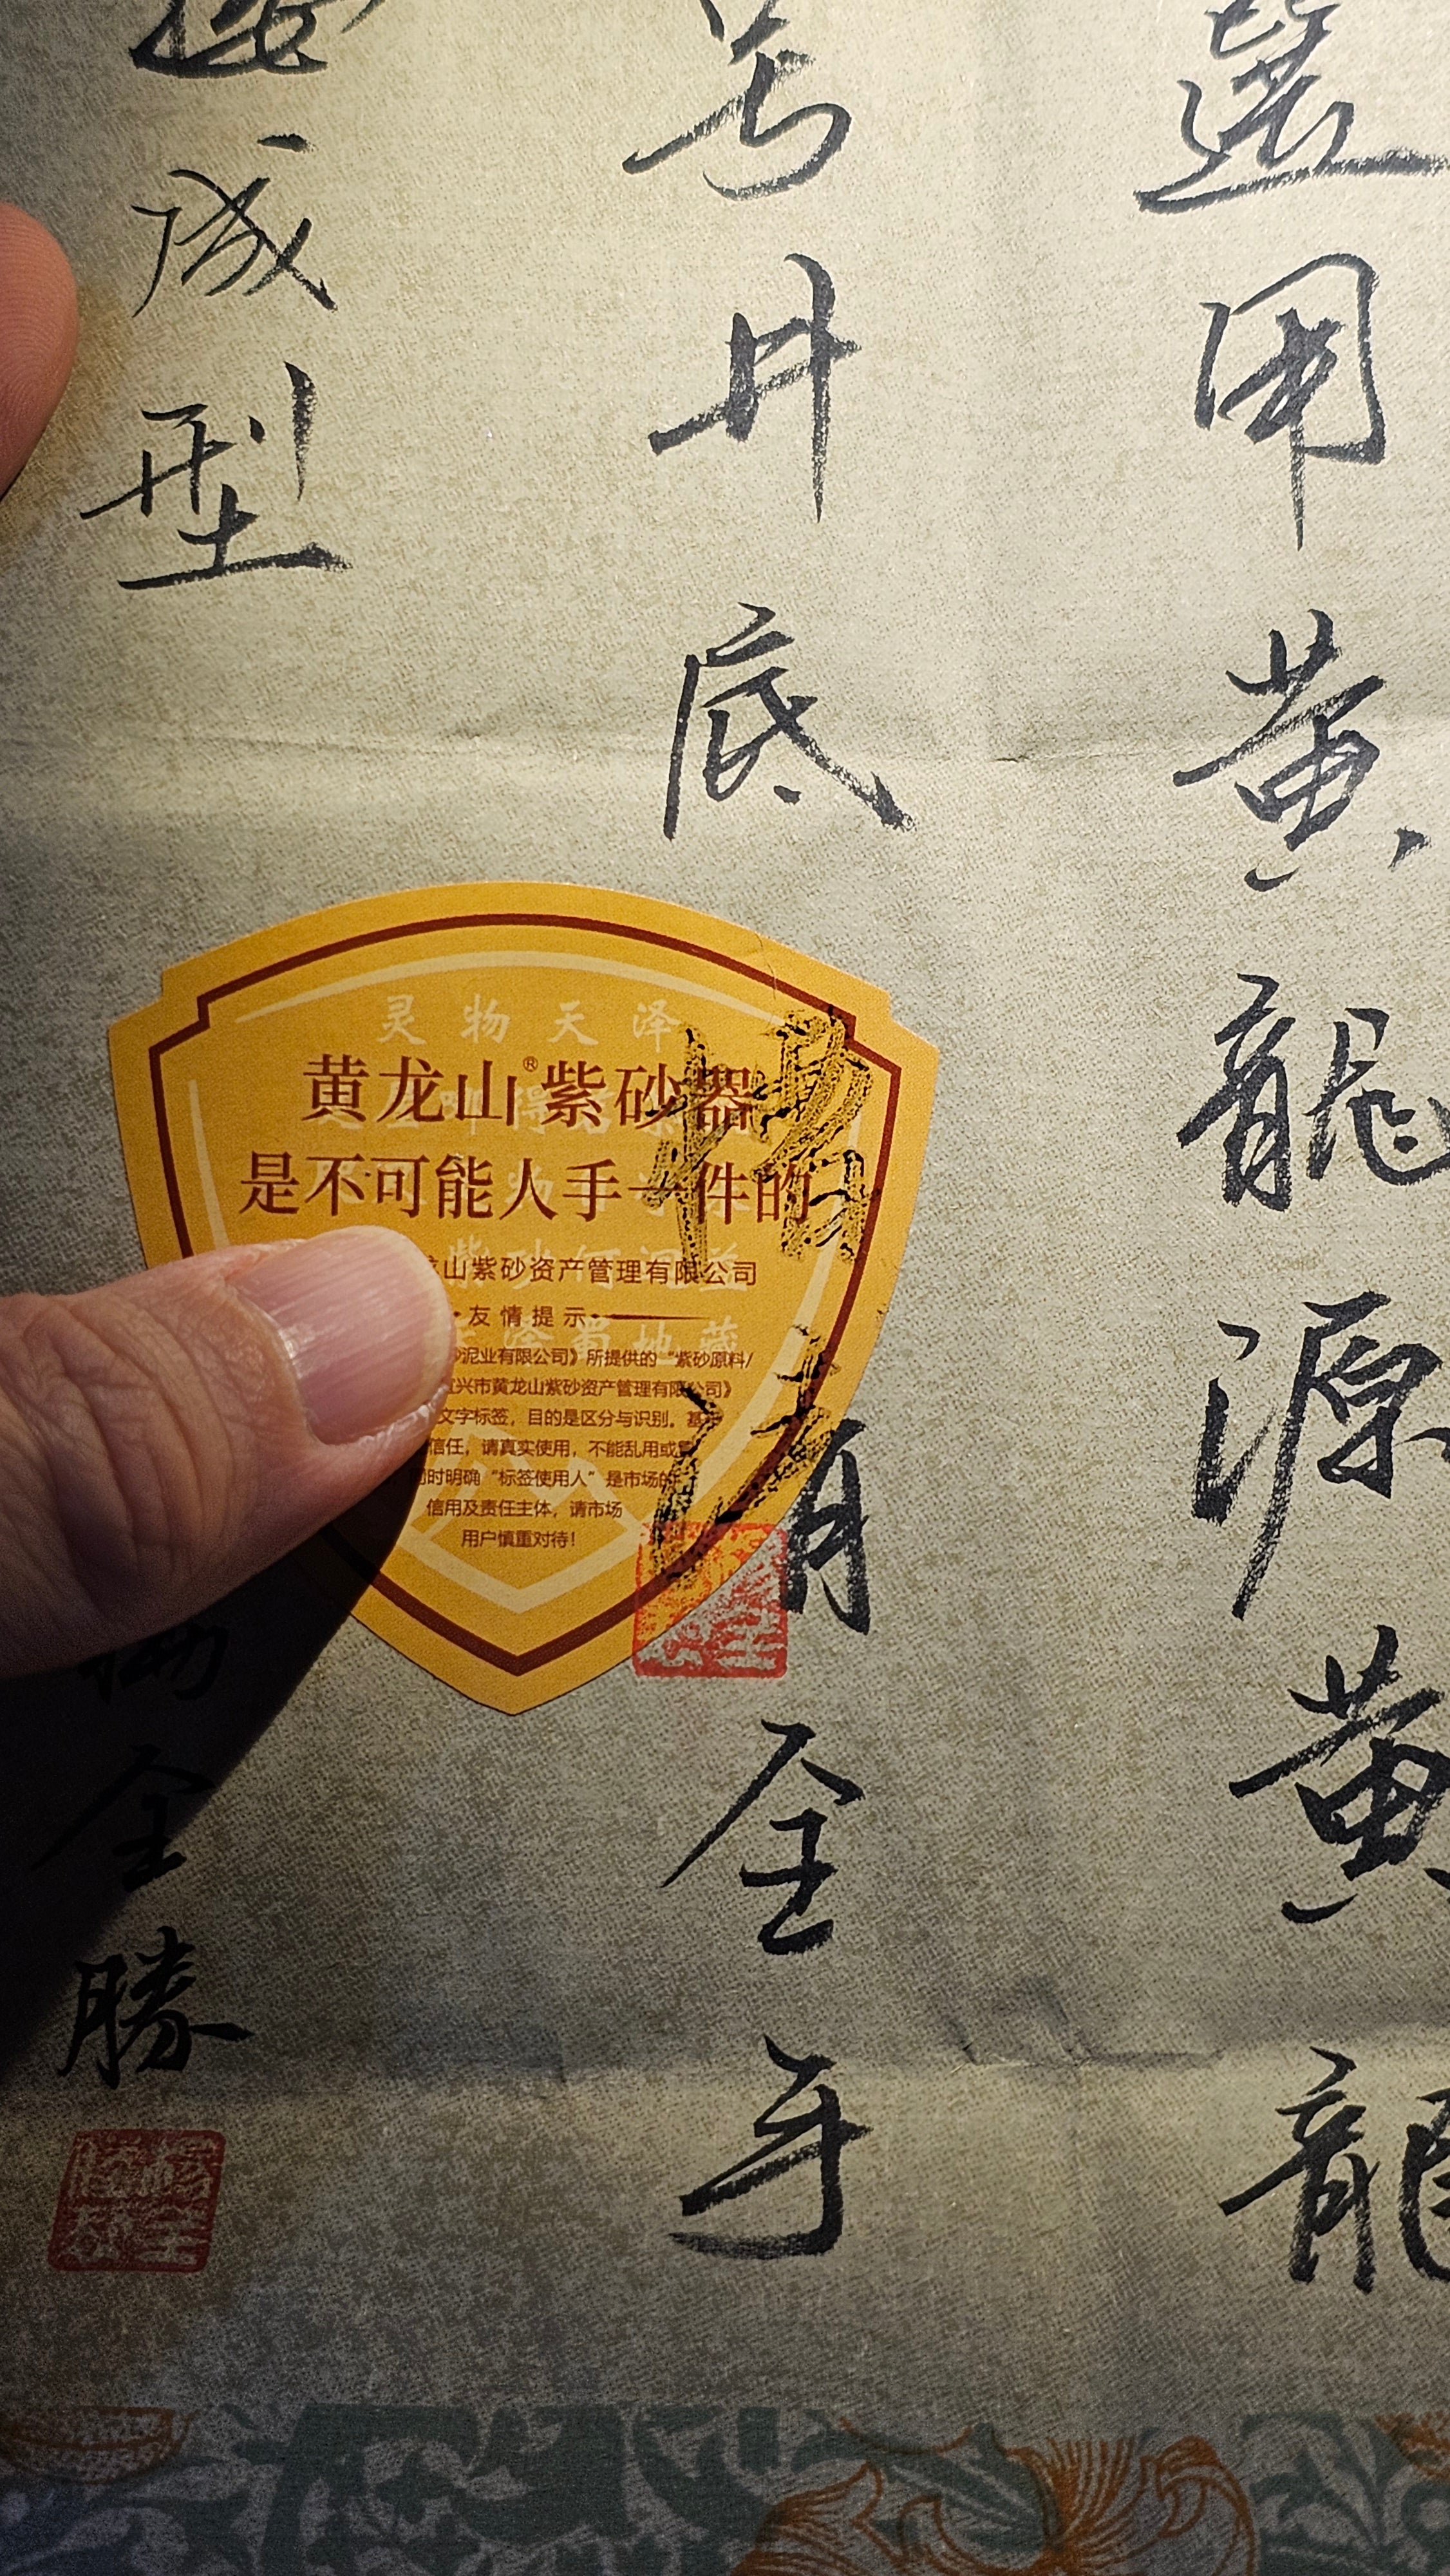 選用黄龍源黄龍
号井底槽清全手
接成型
全勝
灵物天泽
黄龙山®紫砂器
是不可能人手一件的
山紫砂资产管理有限公司
友情提示
泥业有限公司》所提供的“紫砂原料/
兴市黄龙山紫砂资产管理有限公司》
文字标签，目的是区分与识别。基
信任，请真实使用，不能乱用或
时明确“标签使用人”是市场的
信用及责任主体，请市场
用户慎重对待！